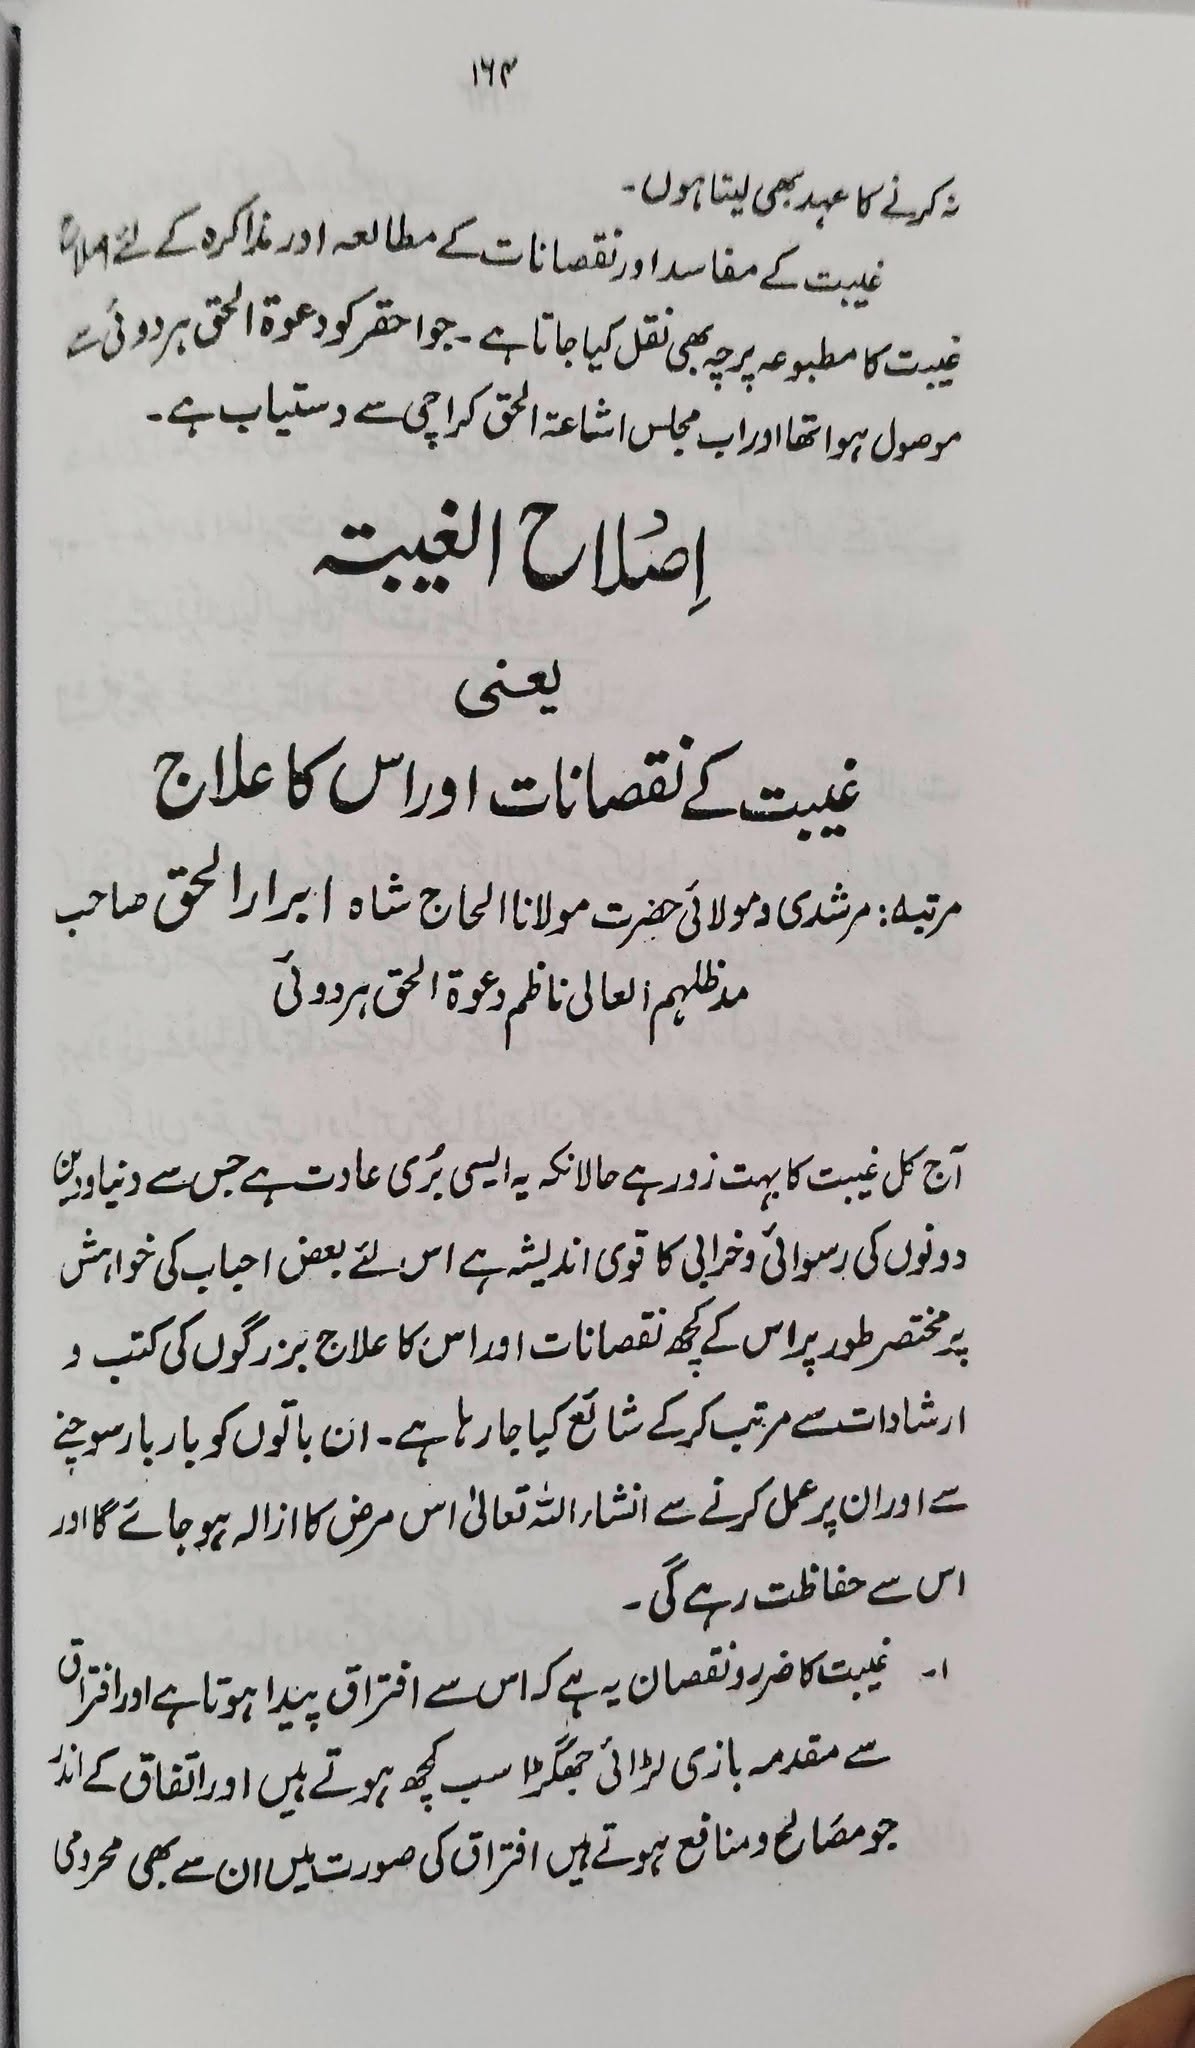 ۱۶۴
نہ کرنے کا عہد بھی لیتا ہوں۔
غیبت کے مفاسد اور نقصانات کے مطالعہ اور مذاکرہ کے لئے اصلاح
غیبت کا مطبوعہ پرچہ بھی نقل کیا جاتا ہے۔ جو احقر کو دعوۃ الحق ہردوئی سے
موصول ہوا تھا اور اب مجلس اشاعۃ الحق کراچی سے دستیاب ہے۔
اِصْلاح الغیبتہ
یعنی
غیبت کے نقصانات اور اس کا علاج
مرتبہ: مرشدی و مولائی حضرت مولانا الحاج شاہ ابرار الحق صاحب
مدظلہم العالی ناظم دعوۃ الحق ہردوئی
آج کل غیبت کا بہت زور ہے حالانکہ یہ ایسی بُری عادت ہے جس سے دنیا و دین
دونوں کی رسوائی و خرابی کا قوی اندیشہ ہے اس لئے بعض احباب کی خواہش
پہ مختصر طور پر اس کے کچھ نقصانات اور اس کا علاج بزرگوں کی کتب و
ارشادات سے مرتب کر کے شائع کیا جا رہا ہے۔ ان باتوں کو بار بار سوچنے
سے اور ان پر عمل کرنے سے انشاء اللہ تعالیٰ اس مرض کا ازالہ ہو جائے گا اور
اس سے حفاظت رہے گی۔
۱۔ غیبت کا ضرر و نقصان یہ ہے کہ اس سے افتراق پیدا ہوتا ہے اور افتراق
سے مقدمہ بازی لڑائی جھگڑا سب کچھ ہوتے ہیں اور اتفاق کے اندر
جو مصالح و منافع ہوتے ہیں افتراق کی صورت میں ان سے بھی محرومی